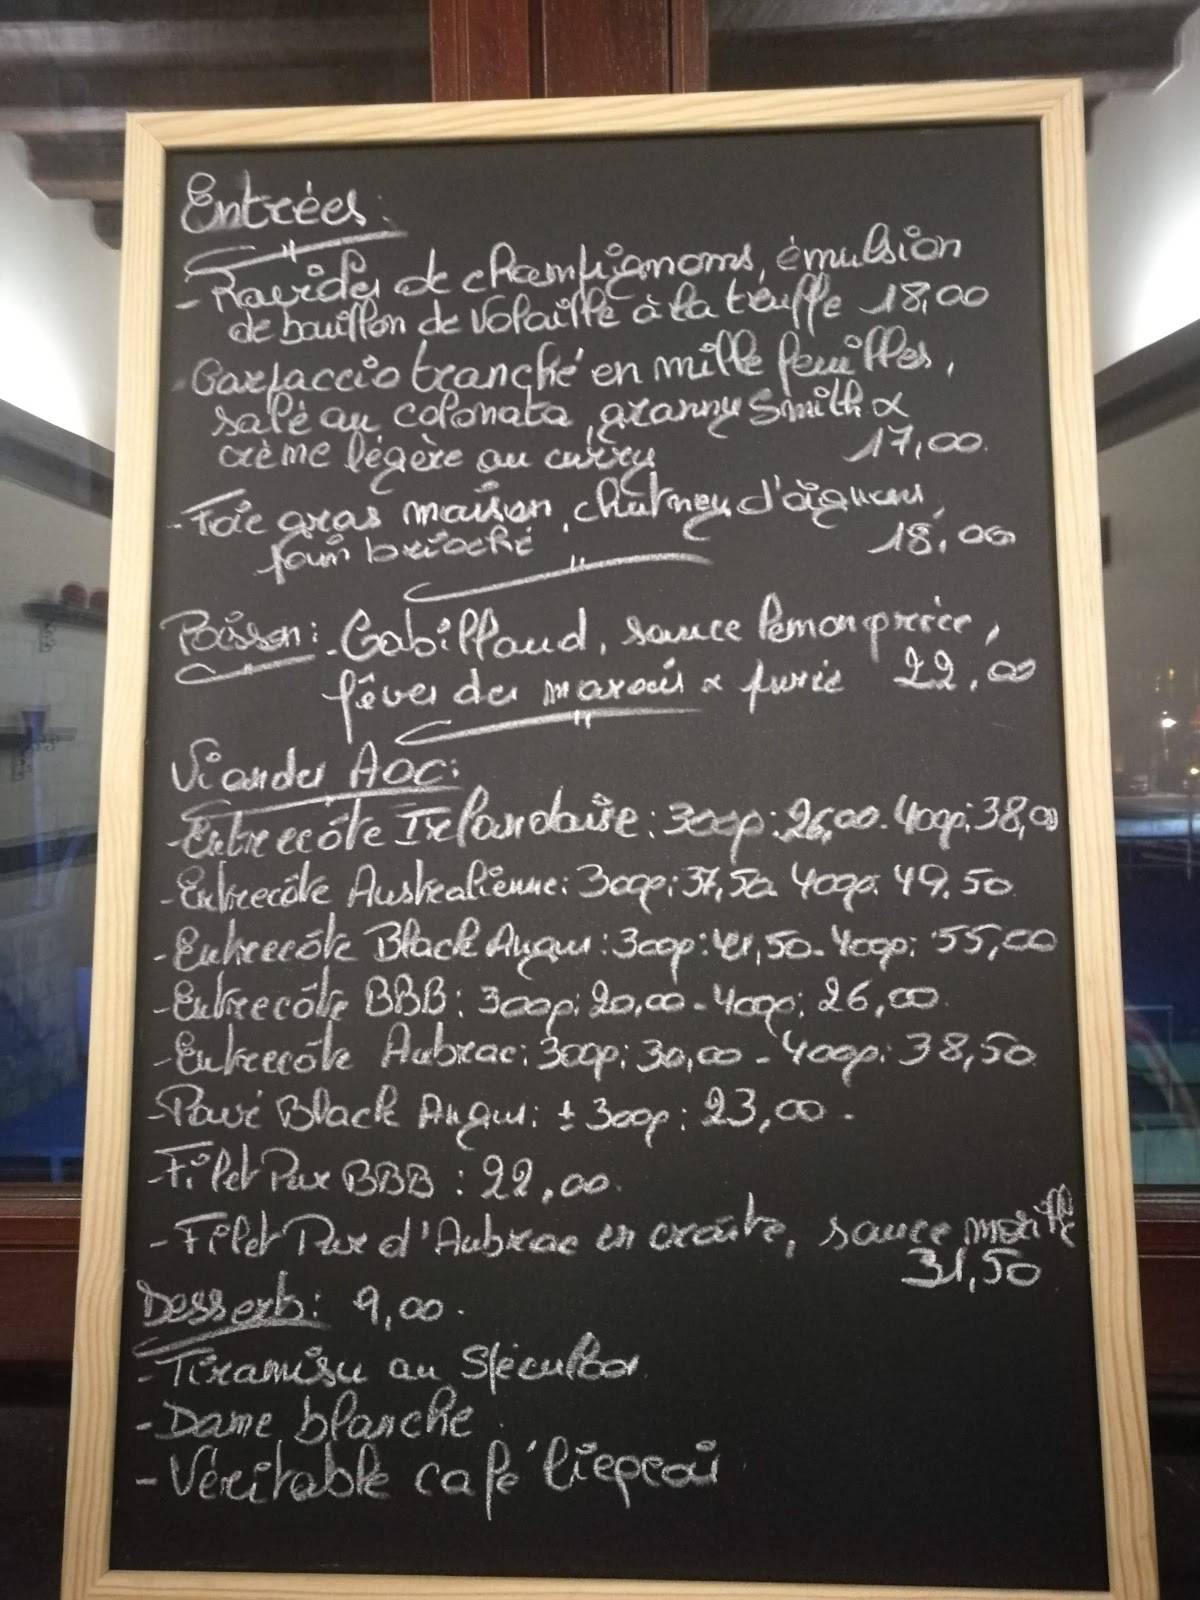 Entrées:
- Ravioles de champignons, émulsion
de bouillon de volaille à la truffe 18,00
- Carpaccio tranché en mille feuilles,
salé au colonata, granny Smith &
crème légère au curry 17,00.
- Foie gras maison, chutney d'agrumes,
pain brioché 18,00
Poisson: - Cabillaud, sauce lemon
fèves des marais & purée 22,00
Viandes AOC:
- Entrecôte Irlandaise: 300gr: 26,00 - 400gr: 38,00
- Entrecôte Australienne: 300gr: 37,50 400gr: 49,50
- Entrecôte Black Angus: 300gr: 41,50 - 400gr: 55,00
- Entrecôte BBB: 300gr: 20,00 - 400gr: 26,00
- Entrecôte Aubrac: 300gr: 30,00 - 400gr: 38,50
- Pavé Black Angus: ± 300gr: 23,00 -
- Filet Pur BBB: 22,00.
- Filet Pur d'Aubrac en croûte, sauce morille
31,50
Desserts: 9,00.
- Tiramisu au Spéculoos
- Dame blanche
- Véritable café liégeois